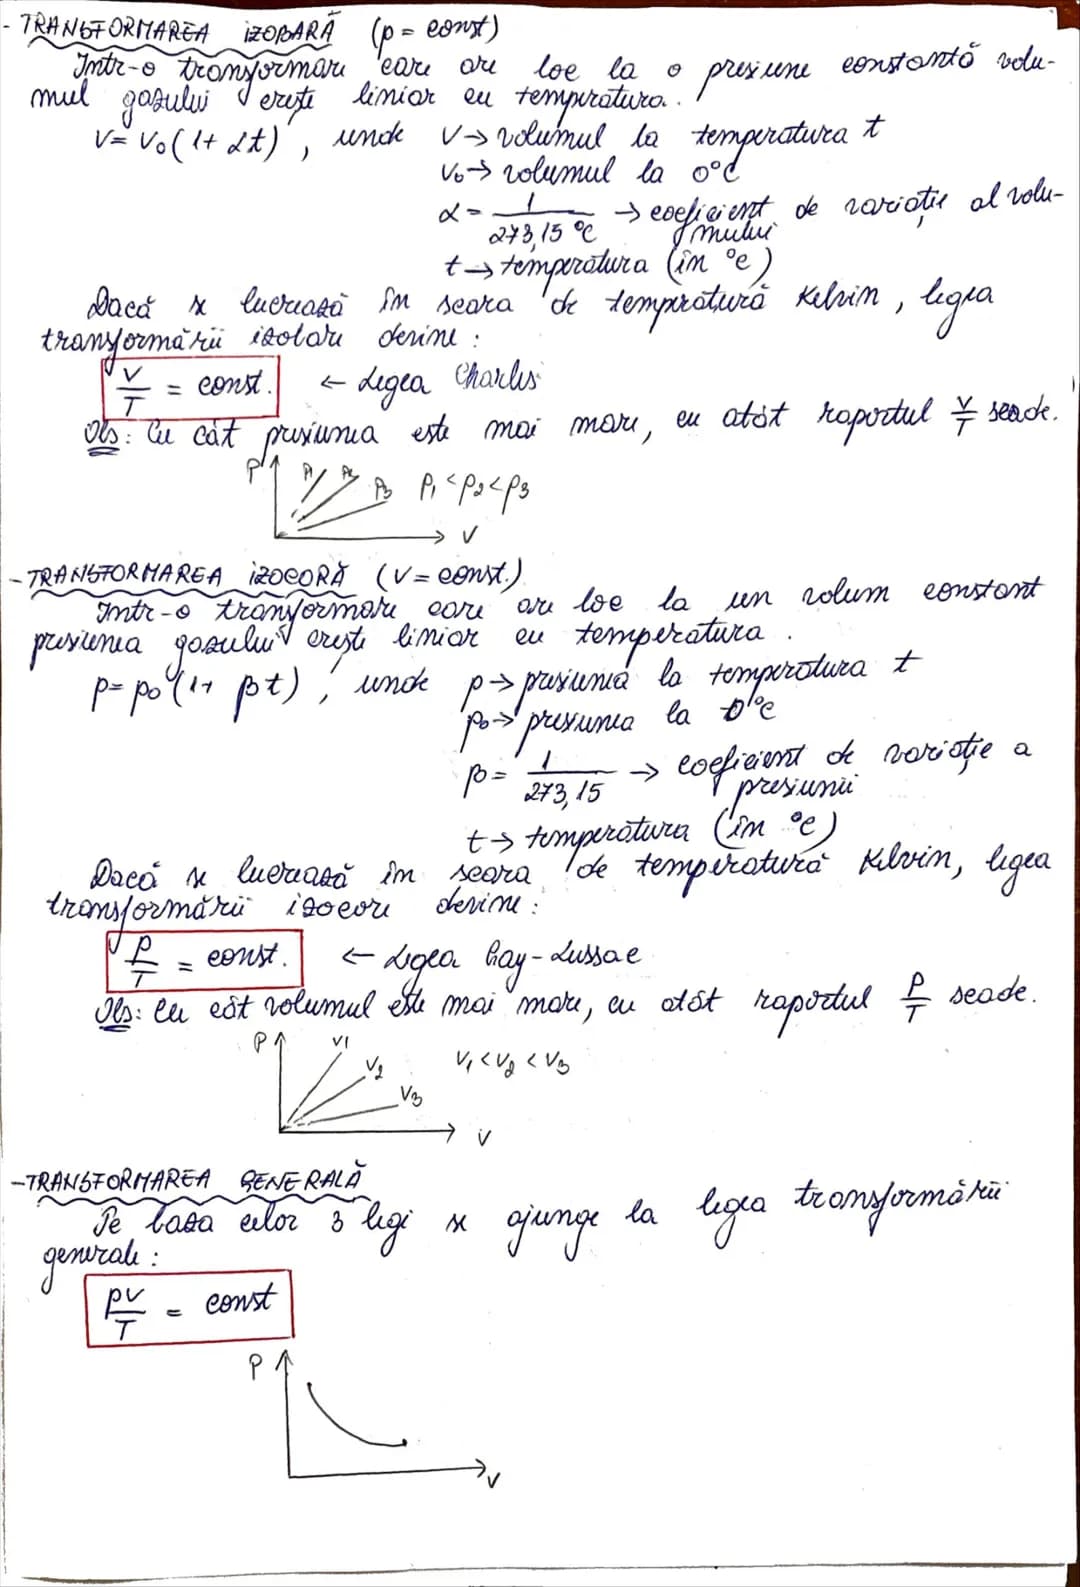 - TRANSFORMAREA IZOBARĂ (p = const)
Într-o transformare care are loc la o presiune constantă volu-
mul gazului crește liniar cu temperatura.
V = V₀(1 + αt), unde V → volumul la temperatura t
V₀ → volumul la 0°C
α = 1/273,15 °C → coeficient de variație al volu-
mului
t → temperatura (în °C)
Dacă se lucrează în scara de temperatură Kelvin, legea
transformării izobare devine:
V/T = const. ← Legea Charles
Obs: Cu cât presiunea este mai mare, cu atât raportul V/T scade.
P p₁ p₂ p₃ p₁ < p₂ < p₃
V
- TRANSFORMAREA IZOCORĂ (V = const.)
Într-o transformare care are loc la un volum constant
presiunea gazului crește liniar cu temperatura.
p = p₀(1 + βt), unde p → presiunea la temperatura t
p₀ → presiunea la 0°C
β = 1/273,15 → coeficient de variație a
presiunii
t → temperatura (în °C)
Dacă se lucrează în scara de temperatură Kelvin, legea
transformării izocore devine:
P/T = const. ← Legea Gay-Lussac
Obs: Cu cât volumul este mai mare, cu atât raportul P/T scade.
P V₁ V₂ V₃ V₁ < V₂ < V₃
V
- TRANSFORMAREA GENERALĂ
Pe baza celor 3 legi se ajunge la legea transformării
generale:
pV/T = const
P
V